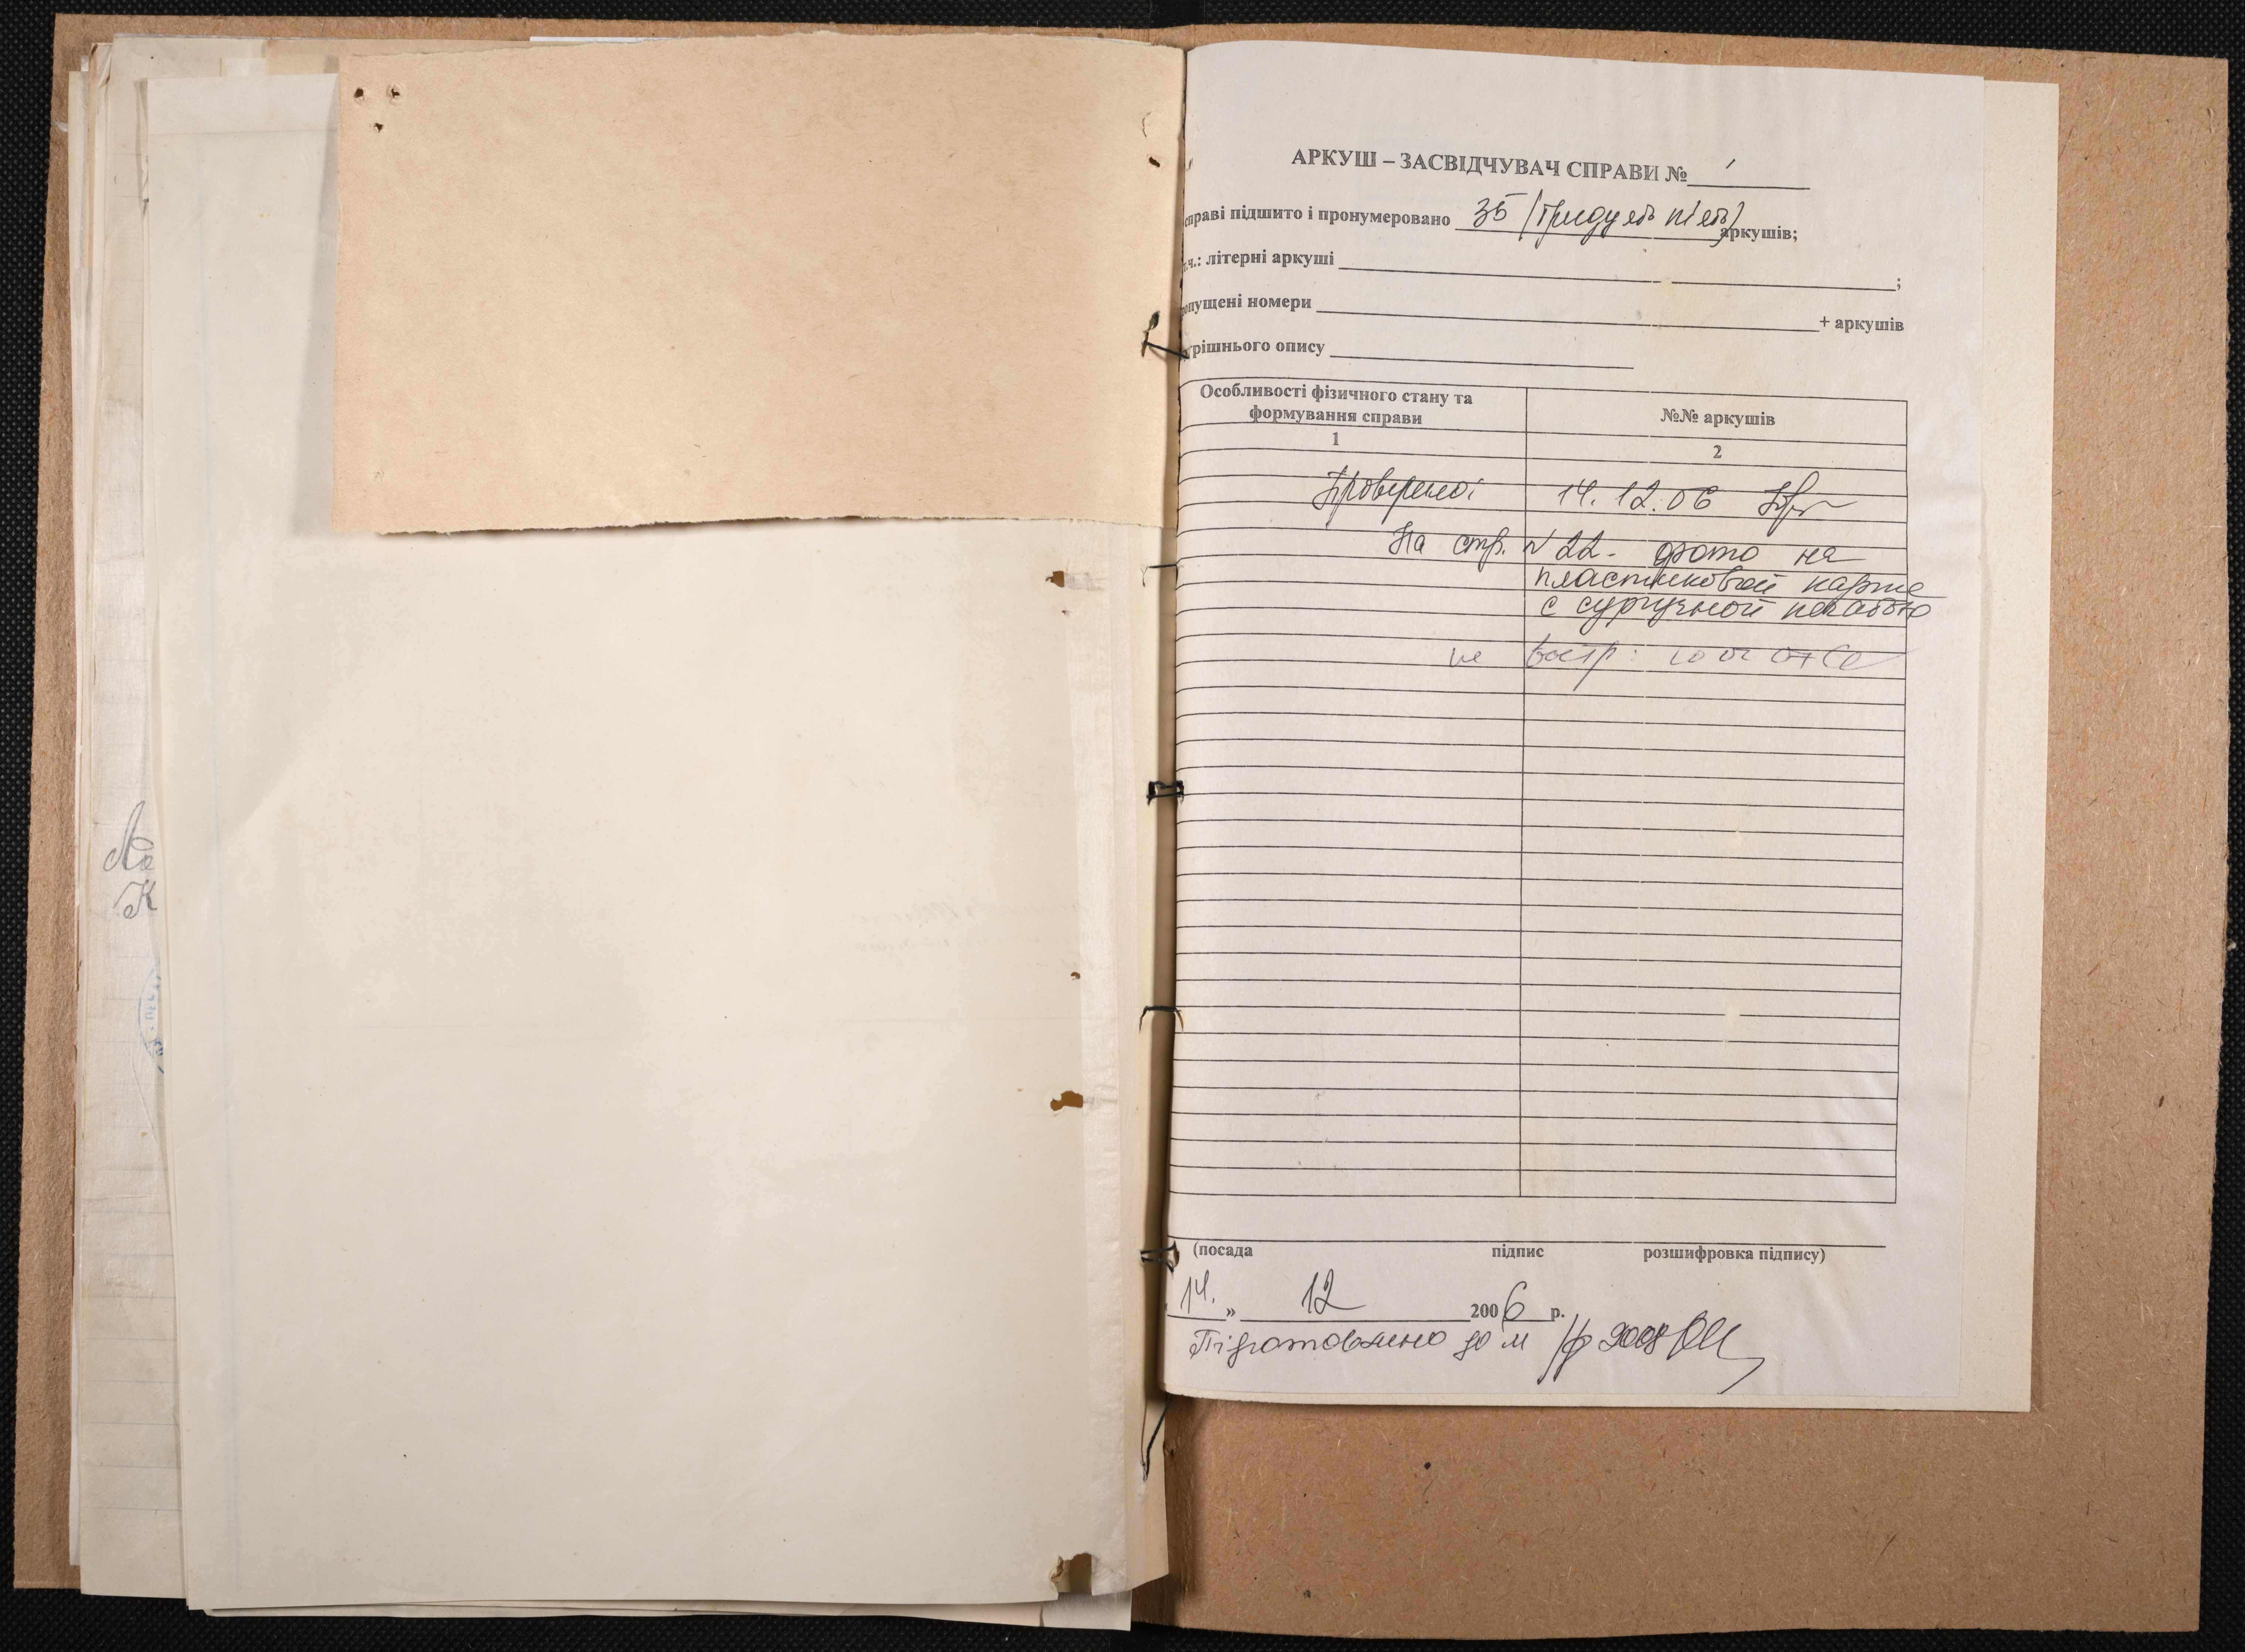 Ло
К
АРКУШ – ЗАСВІДЧУВАЧ СПРАВИ №
справі підшито і пронумеровано 35 (тридцять п'ять) аркушів;
т.ч.: літерні аркуші ;
опущені номери + аркушів
трішнього опису
Особливості фізичного стану та
формування справи
№№ аркушів
1 2
Проверено: 14.12.06
На стр. №22 - фото на
пластиковой карте
с сургучной печатью
не
(посада підпис розшифровка підпису)
14. » 12 2006 р.
Підготовлено до м/ф 2008